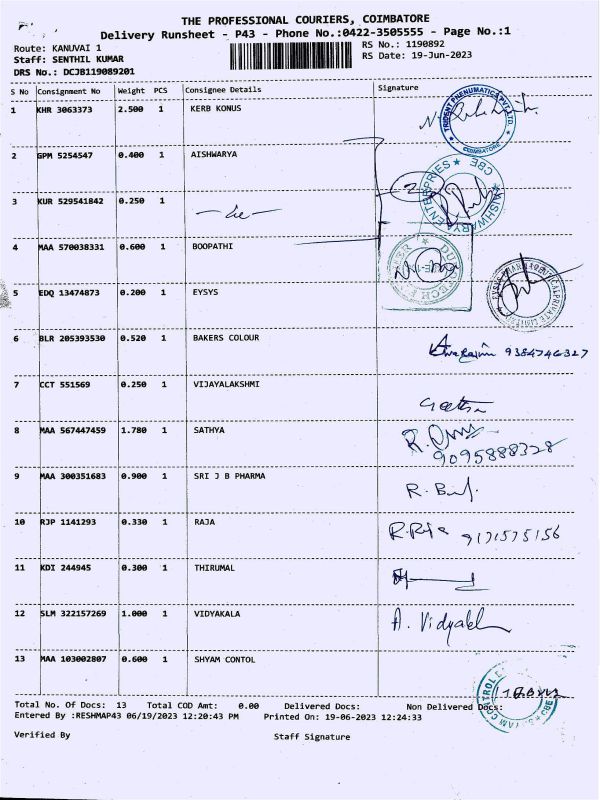 THE PROFESSIONAL COURIERS, COIMBATORE
Delivery Runsheet - P43 - Phone No.:0422-3505555 - Page No.:1
Route: KANUVAI 1 RS No.: 1190892
Staff: SENTHIL KUMAR RS Date: 19-Jun-2023
DRS No.: DCJB119089201
S No Consignment No Weight PCS Consignee Details Signature
1 KHR 3063373 2.500 1 KERB KONUS
TRIDENT PNEUMATICS PVT. LTD. COIMBATORE
2 GPM 5254547 0.400 1 AISHWARYA
AISHWARYA ENTERPRISES CBE
3 KUR 529541842 0.250 1
2
4 MAA 570038331 0.600 1 BOOPATHI
5 EDQ 13474873 0.200 1 EYSYS
6 BLR 205393530 0.520 1 BAKERS COLOUR 9384746327
7 CCT 551569 0.250 1 VIJAYALAKSHMI Geetha
8 MAA 567447459 1.780 1 SATHYA
9095888328
9 MAA 300351683 0.900 1 SRI J B PHARMA
10 RJP 1141293 0.330 1 RAJA R.Raja 9171575156
11 KDI 244945 0.300 1 THIRUMAL
12 SLM 322157269 1.000 1 VIDYAKALA A. Vidyakl
13 MAA 103002807 0.600 1 SHYAM CONTOL
Total No. Of Docs: 13 Total COD Amt: 0.00 Delivered Docs: Non Delivered Docs:
Entered By :RESHMAP43 06/19/2023 12:20:43 PM Printed On: 19-06-2023 12:24:33
Verified By Staff Signature